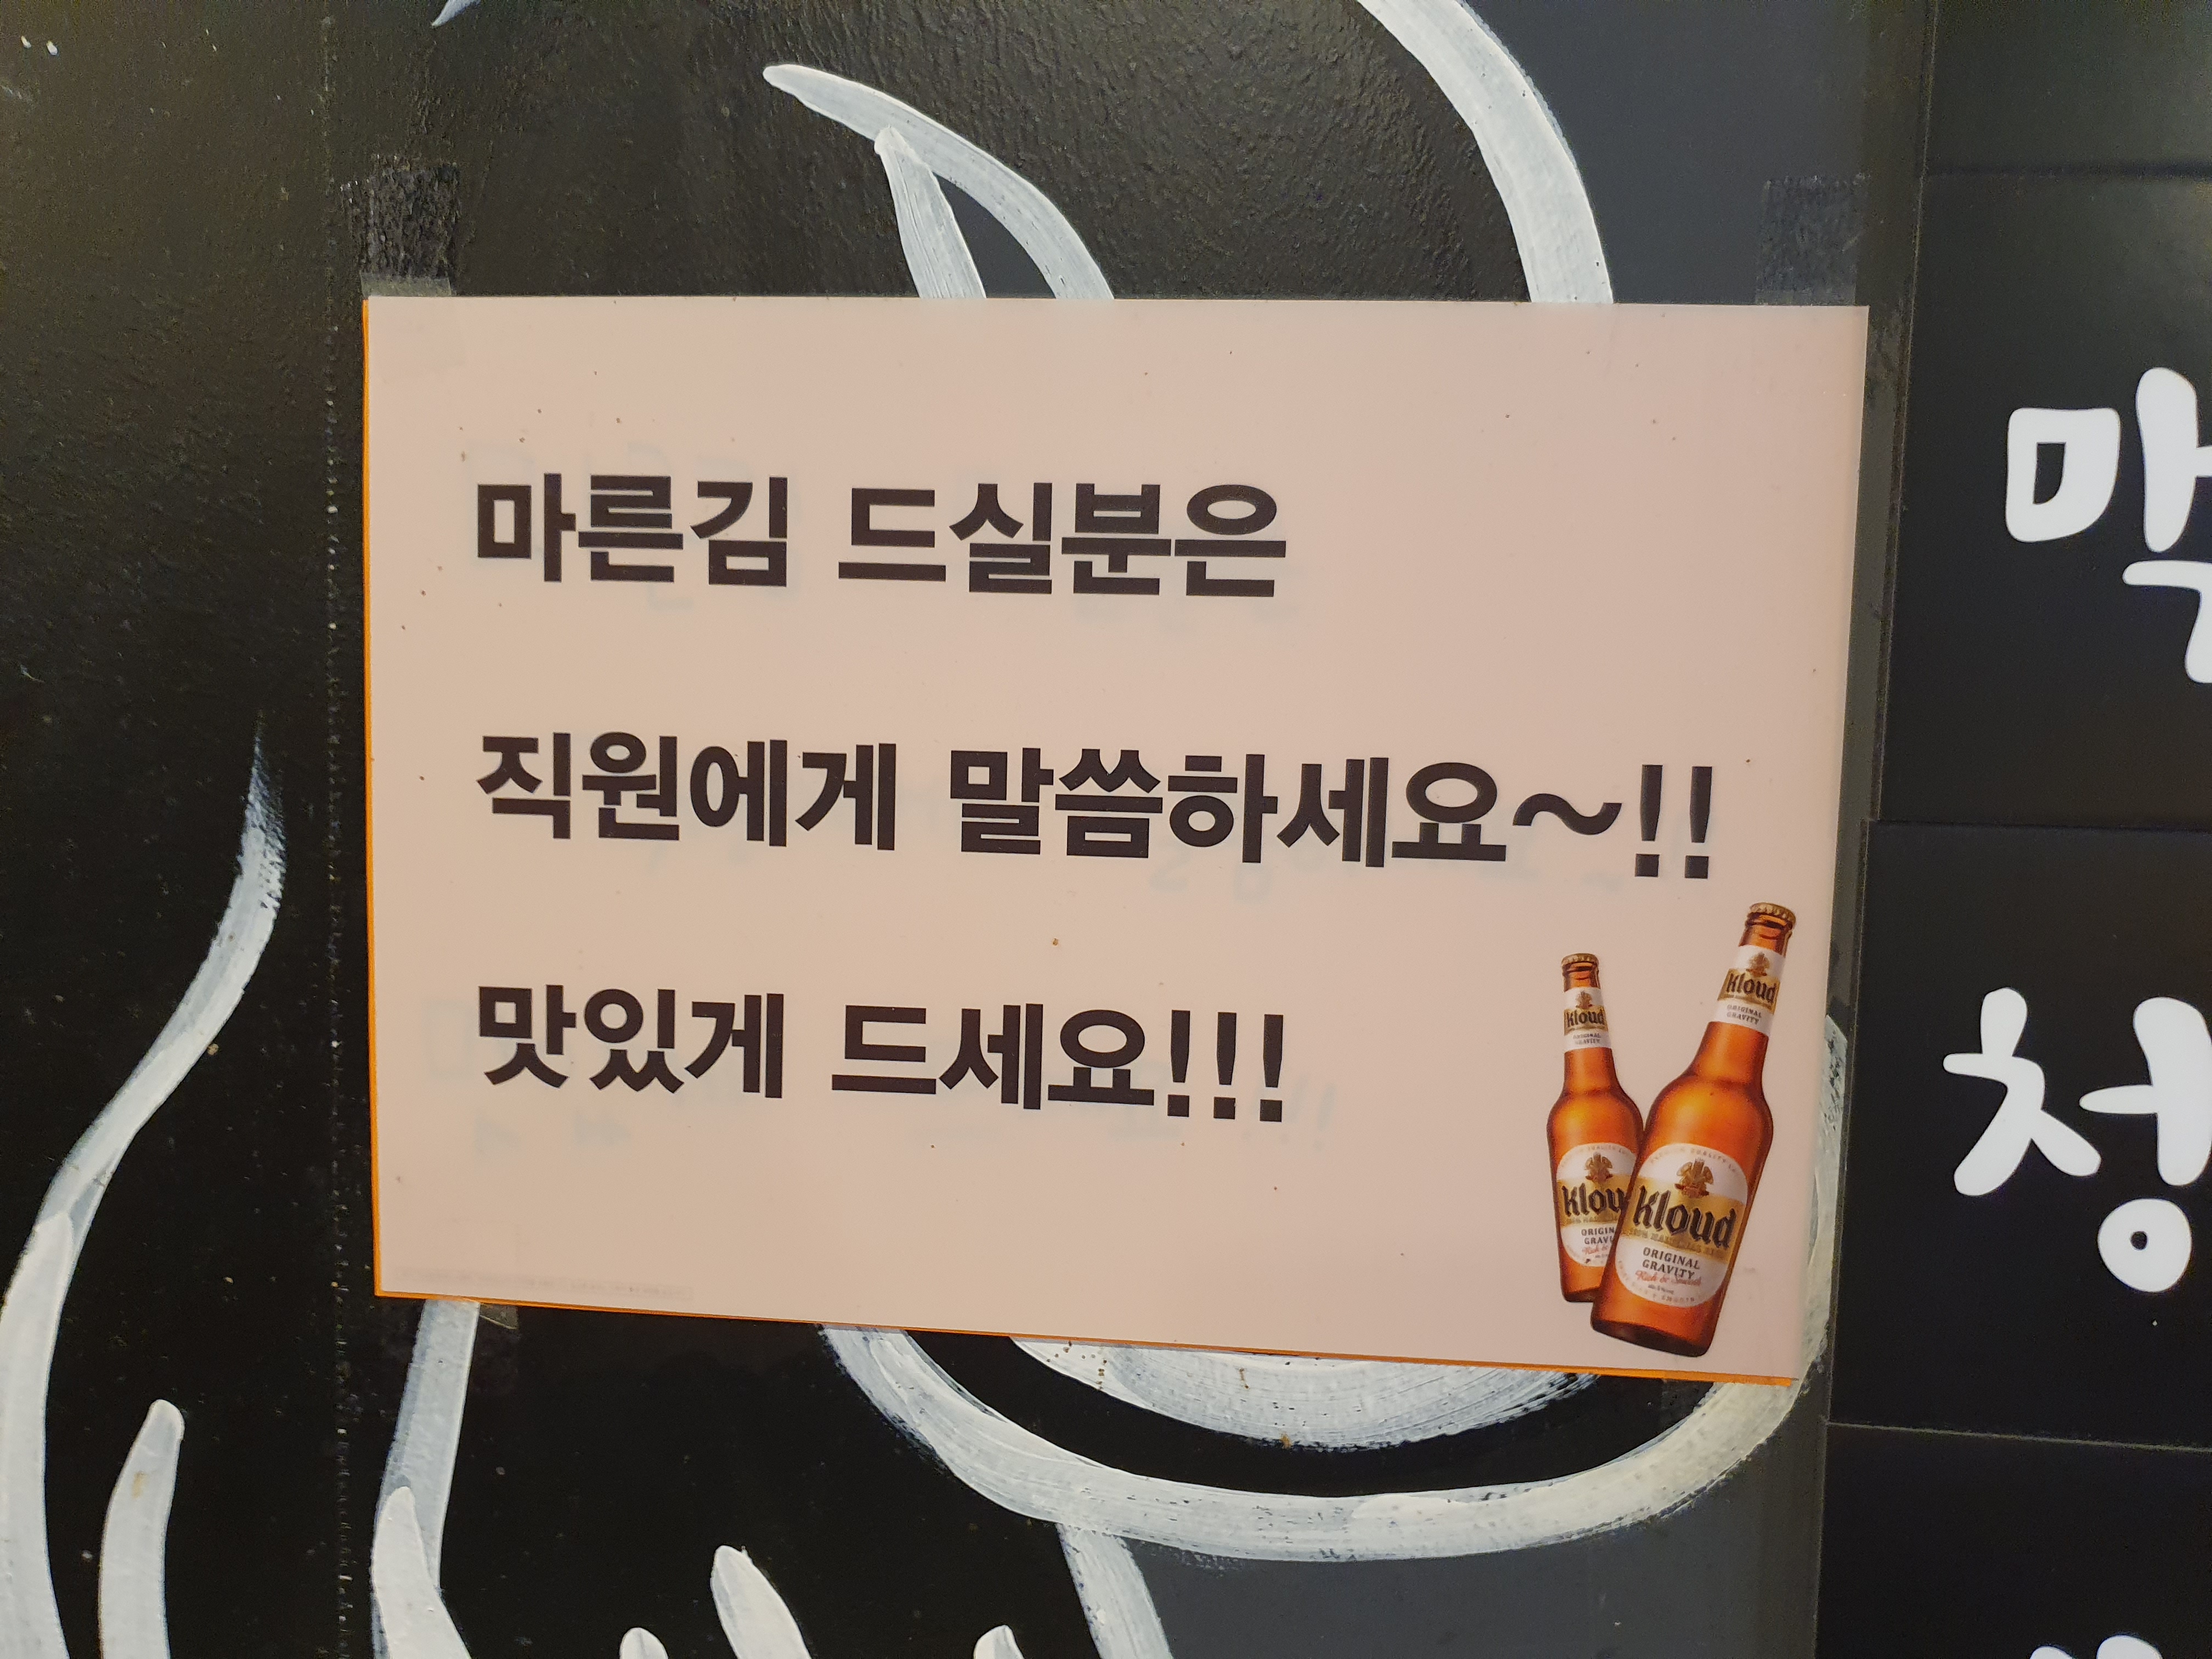 마른김 드실분은
직원에게 말씀하세요~!!
맛있게 드세요!!!
Kloud
ORIGINAL
GRAVITY
Kloud
ORIGINAL
GRAVITY
Kloud
ORIGINAL
GRAVITY
청